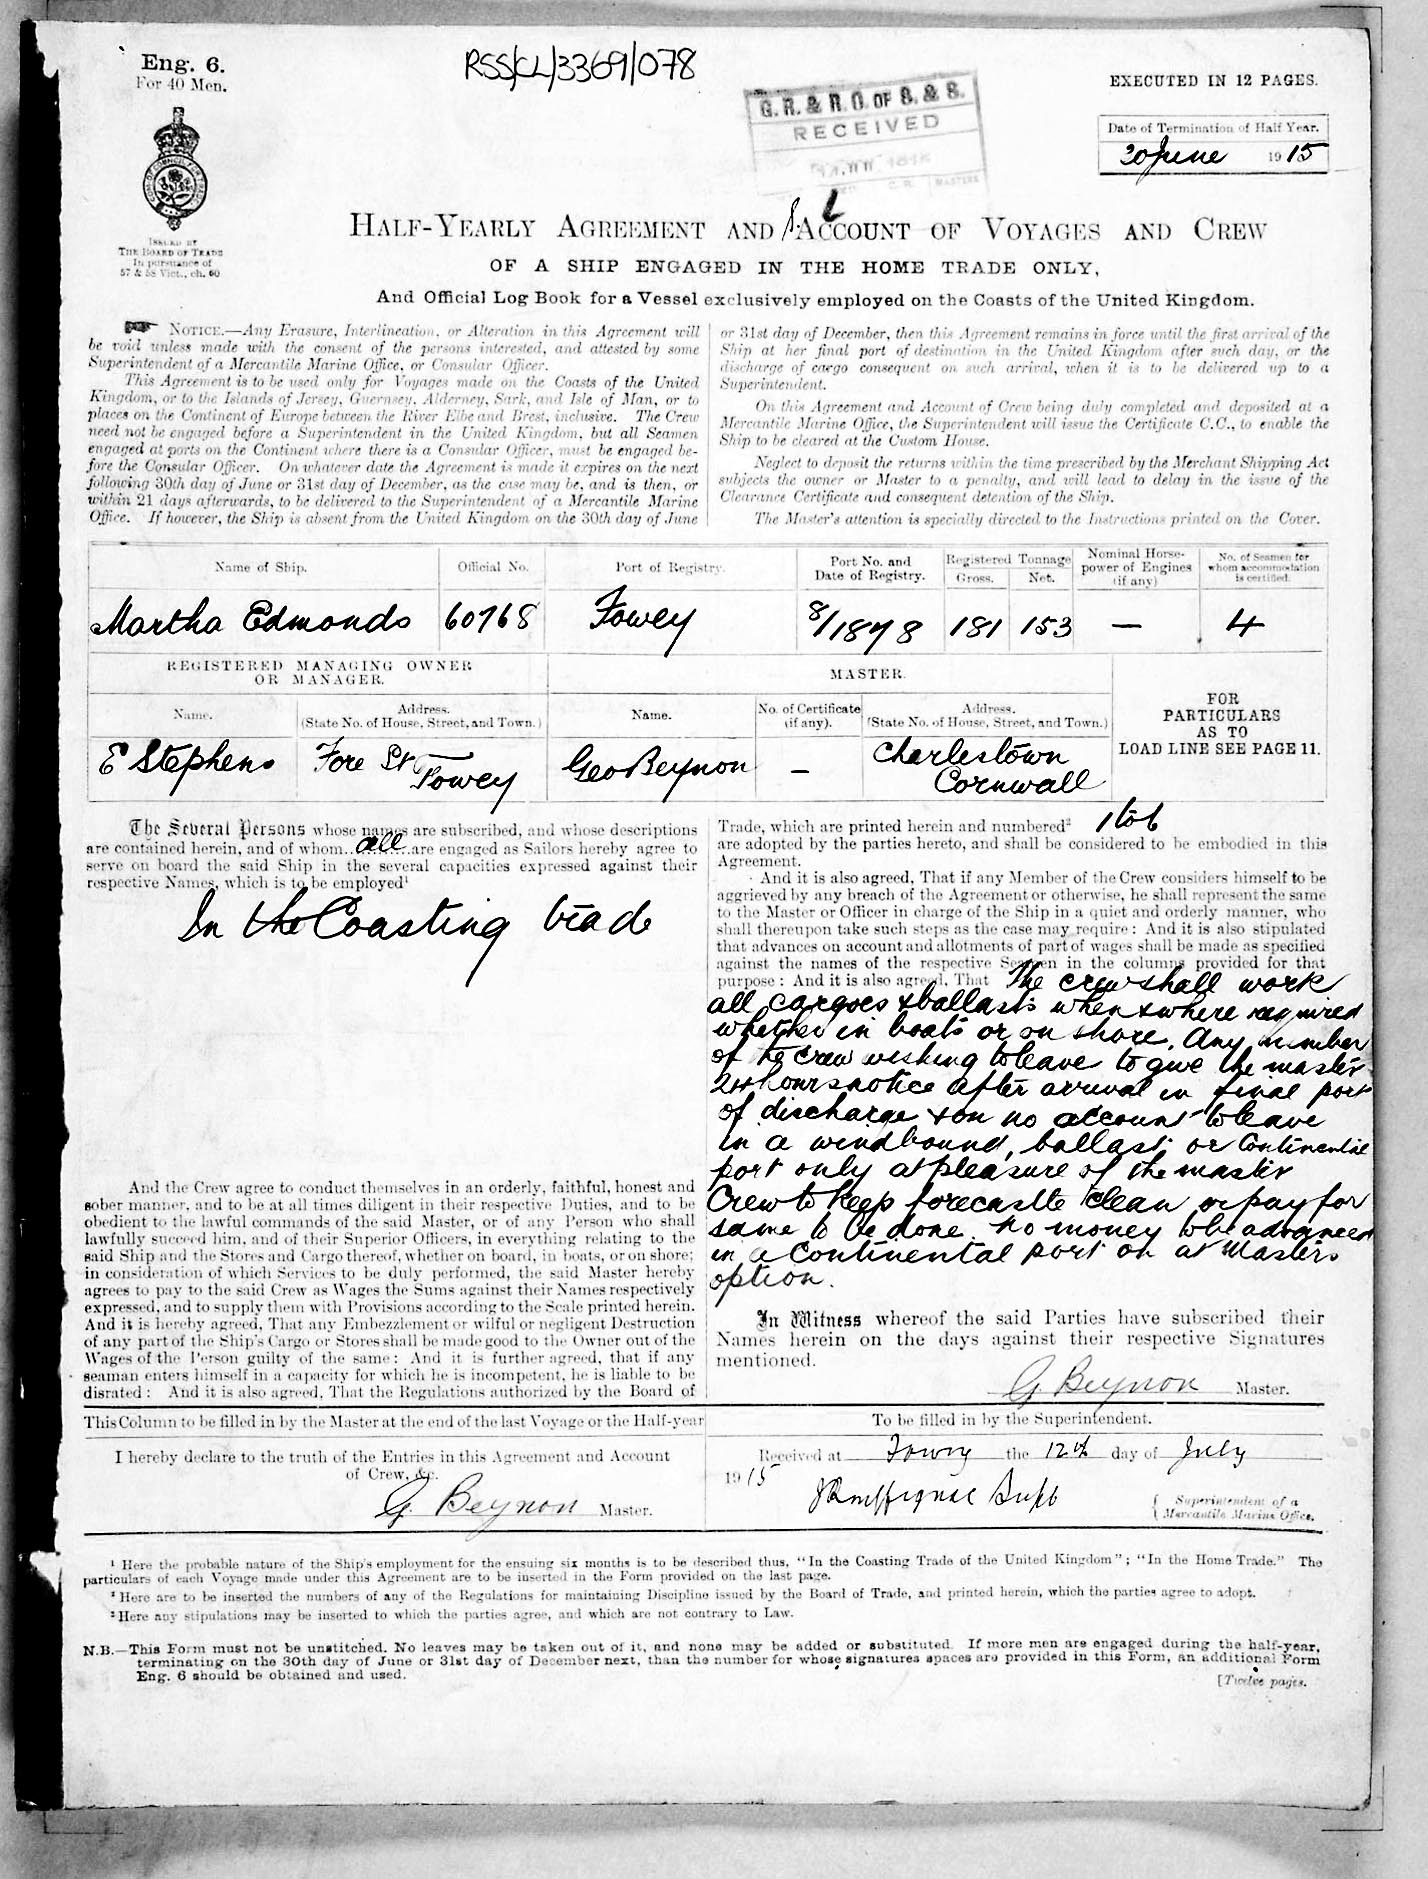 Eng. 6.
For 40 Men.
RSS/CL/3369/078
G. R. & R. O. OF S. & S.
RECEIVED
EXECUTED IN 12 PAGES.
Date of Termination of Half Year.
30 June 1915
ISSUED BY
THE BOARD OF TRADE
In pursuance of
57 & 58 Vict., ch. 60
HALF-YEARLY AGREEMENT AND ACCOUNT OF VOYAGES AND CREW
OF A SHIP ENGAGED IN THE HOME TRADE ONLY,
And Official Log Book for a Vessel exclusively employed on the Coasts of the United Kingdom.
NOTICE.—Any Erasure, Interlineation, or Alteration in this Agreement will
be void unless made with the consent of the persons interested, and attested by some
Superintendent of a Mercantile Marine Office, or Consular Officer.
This Agreement is to be used only for Voyages made on the Coasts of the United
Kingdom, or to the Islands of Jersey, Guernsey, Alderney, Sark, and Isle of Man, or to
places on the Continent of Europe between the River Elbe and Brest, inclusive. The Crew
need not be engaged before a Superintendent in the United Kingdom, but all Seamen
engaged at ports on the Continent where there is a Consular Officer, must be engaged be-
fore the Consular Officer. On whatever date the Agreement is made it expires on the next
following 30th day of June or 31st day of December, as the case may be, and is then, or
within 21 days afterwards, to be delivered to the Superintendent of a Mercantile Marine
Office. If however, the Ship is absent from the United Kingdom on the 30th day of June
or 31st day of December, then this Agreement remains in force until the first arrival of the
Ship at her final port of destination in the United Kingdom after such day, or the
discharge of cargo consequent on such arrival, when it is to be delivered up to a
Superintendent.
On this Agreement and Account of Crew being duly completed and deposited at a
Mercantile Marine Office, the Superintendent will issue the Certificate C.C., to enable the
Ship to be cleared at the Custom House.
Neglect to deposit the returns within the time prescribed by the Merchant Shipping Act
subjects the owner or Master to a penalty, and will lead to delay in the issue of the
Clearance Certificate and consequent detention of the Ship.
The Master's attention is specially directed to the Instructions printed on the Cover.
Name of Ship. Official No. Port of Registry. Port No. and Date of Registry. Registered Tonnage Gross. Net. Nominal Horse-power of Engines (if any) No. of Seamen for whom accommodation is certified.
Martha Edmonds 60768 Fowey 8/1878 181 153 — 4
REGISTERED MANAGING OWNER
OR MANAGER.
MASTER.
Name. Address. (State No. of House, Street, and Town.) Name. No. of Certificate (if any). Address. (State No. of House, Street, and Town.)
FOR
PARTICULARS
AS TO
LOAD LINE SEE PAGE 11.
E Stephens Fore St Fowey Geo Beynon — Charlestown Cornwall
The Several Persons whose names are subscribed, and whose descriptions
are contained herein, and of whom all are engaged as Sailors hereby agree to
serve on board the said Ship in the several capacities expressed against their
respective Names, which is to be employed¹
In the Coasting trade
And the Crew agree to conduct themselves in an orderly, faithful, honest and
sober manner, and to be at all times diligent in their respective Duties, and to be
obedient to the lawful commands of the said Master, or of any Person who shall
lawfully succeed him, and of their Superior Officers, in everything relating to the
said Ship and the Stores and Cargo thereof, whether on board, in boats, or on shore;
in consideration of which Services to be duly performed, the said Master hereby
agrees to pay to the said Crew as Wages the Sums against their Names respectively
expressed, and to supply them with Provisions according to the Scale printed herein.
And it is hereby agreed, That any Embezzlement or wilful or negligent Destruction
of any part of the Ship's Cargo or Stores shall be made good to the Owner out of the
Wages of the Person guilty of the same: And it is further agreed, that if any
seaman enters himself in a capacity for which he is incompetent, he is liable to be
disrated: And it is also agreed, That the Regulations authorized by the Board of
Trade, which are printed herein and numbered² 1 to 6
are adopted by the parties hereto, and shall be considered to be embodied in this
Agreement.
And it is also agreed, That if any Member of the Crew considers himself to be
aggrieved by any breach of the Agreement or otherwise, he shall represent the same
to the Master or Officer in charge of the Ship in a quiet and orderly manner, who
shall thereupon take such steps as the case may require: And it is also stipulated
that advances on account and allotments of part of wages shall be made as specified
against the names of the respective Seamen in the columns provided for that
purpose: And it is also agreed, That The crew shall work
all cargoes & ballasts when & where required
whether in boats or on shore. Any number
of the crew wishing to leave to give the master
24 hours notice after arrival in final port
of discharge & on no account to leave
in a windbound, ballast or Continental
port only at pleasure of the master
Crew to keep forecastle clean or pay for
same to be done. No money to be advanced
in a Continental port or at Masters
option.
In Witness whereof the said Parties have subscribed their
Names herein on the days against their respective Signatures
mentioned.
G. Beynon Master.
This Column to be filled in by the Master at the end of the last Voyage or the Half-year
I hereby declare to the truth of the Entries in this Agreement and Account
of Crew, &c.
G. Beynon Master.
To be filled in by the Superintendent.
Received at Fowey the 12th day of July
1915
Supt
Superintendent of a
Mercantile Marine Office.
¹ Here the probable nature of the Ship's employment for the ensuing six months is to be described thus, "In the Coasting Trade of the United Kingdom"; "In the Home Trade." The
particulars of each Voyage made under this Agreement are to be inserted in the Form provided on the last page.
² Here are to be inserted the numbers of any of the Regulations for maintaining Discipline issued by the Board of Trade, and printed herein, which the parties agree to adopt.
³ Here any stipulations may be inserted to which the parties agree, and which are not contrary to Law.
N.B.—This Form must not be unstitched. No leaves may be taken out of it, and none may be added or substituted. If more men are engaged during the half-year,
terminating on the 30th day of June or 31st day of December next, than the number for whose signatures spaces are provided in this Form, an additional Form
Eng. 6 should be obtained and used.
[Twelve pages.